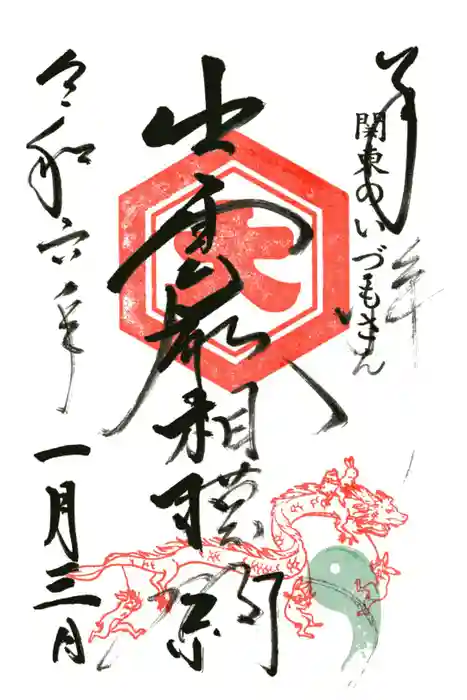 奉拝
関東のいづもさん
出雲大社相模分祠
令和六年
一月三日